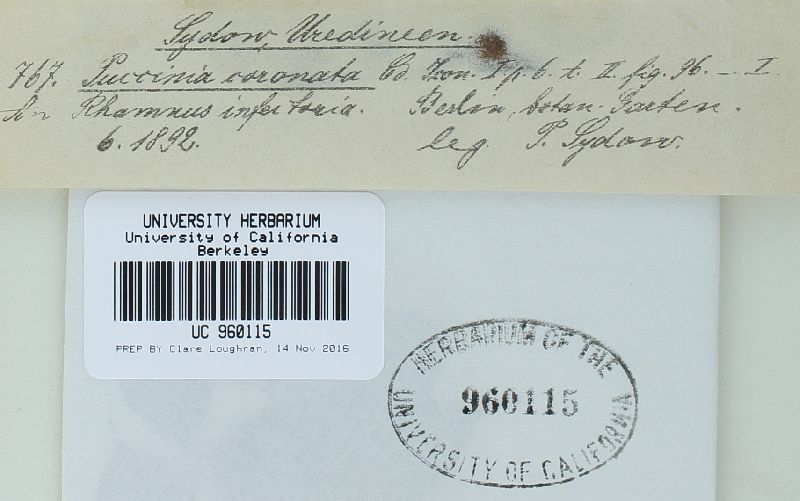 Sydow, Uredineen.
767. Puccinia coronata Cd. Icon. I p. 6. t. II. fig. 96. — I.
An Rhamnus infectoria. Berlin, botan. Garten.
6. 1892. leg. P. Sydow.
UNIVERSITY HERBARIUM
University of California
Berkeley
UC 960115
PREP BY Clare Loughran, 14 Nov 2016
HERBARIUM OF THE
960115
UNIVERSITY OF CALIFORNIA